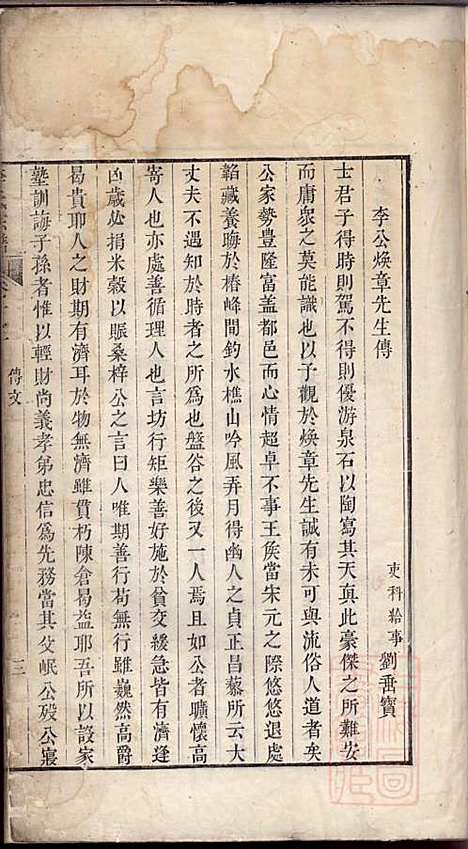 李公煥章先生傳
吏科給事劉
士君子得時則駕不得則優游泉石以陶寫其天真此豪傑之所難安
而庸衆之莫能識也以予觀於煥章先生誠有未可與流俗人道者矣
公家勢豐隆富盖都邑而心情超卓不事王矦當宋元之際悠悠退處
韜藏養晦於椿峰間釣水樵山吟風弄月得幽人之貞正昌藜所云大
丈夫不遇知於時者之所為也盤谷之後又一人焉且如公者曠懷高
寄人也亦處善循理人也言坊行矩樂善好施於貧交緩急皆有濟逢
凶歲必捐米穀以賑桑梓公之言曰人唯期善行苟無行雖巍然高爵
曷貴耶人之財期有濟耳於物無濟雖貫朽陳倉曷益耶吾所以設家
塾訓誨子孫者惟以輕財尚義孝弟忠信為先務當其父岷公殁公寢
傳文
三